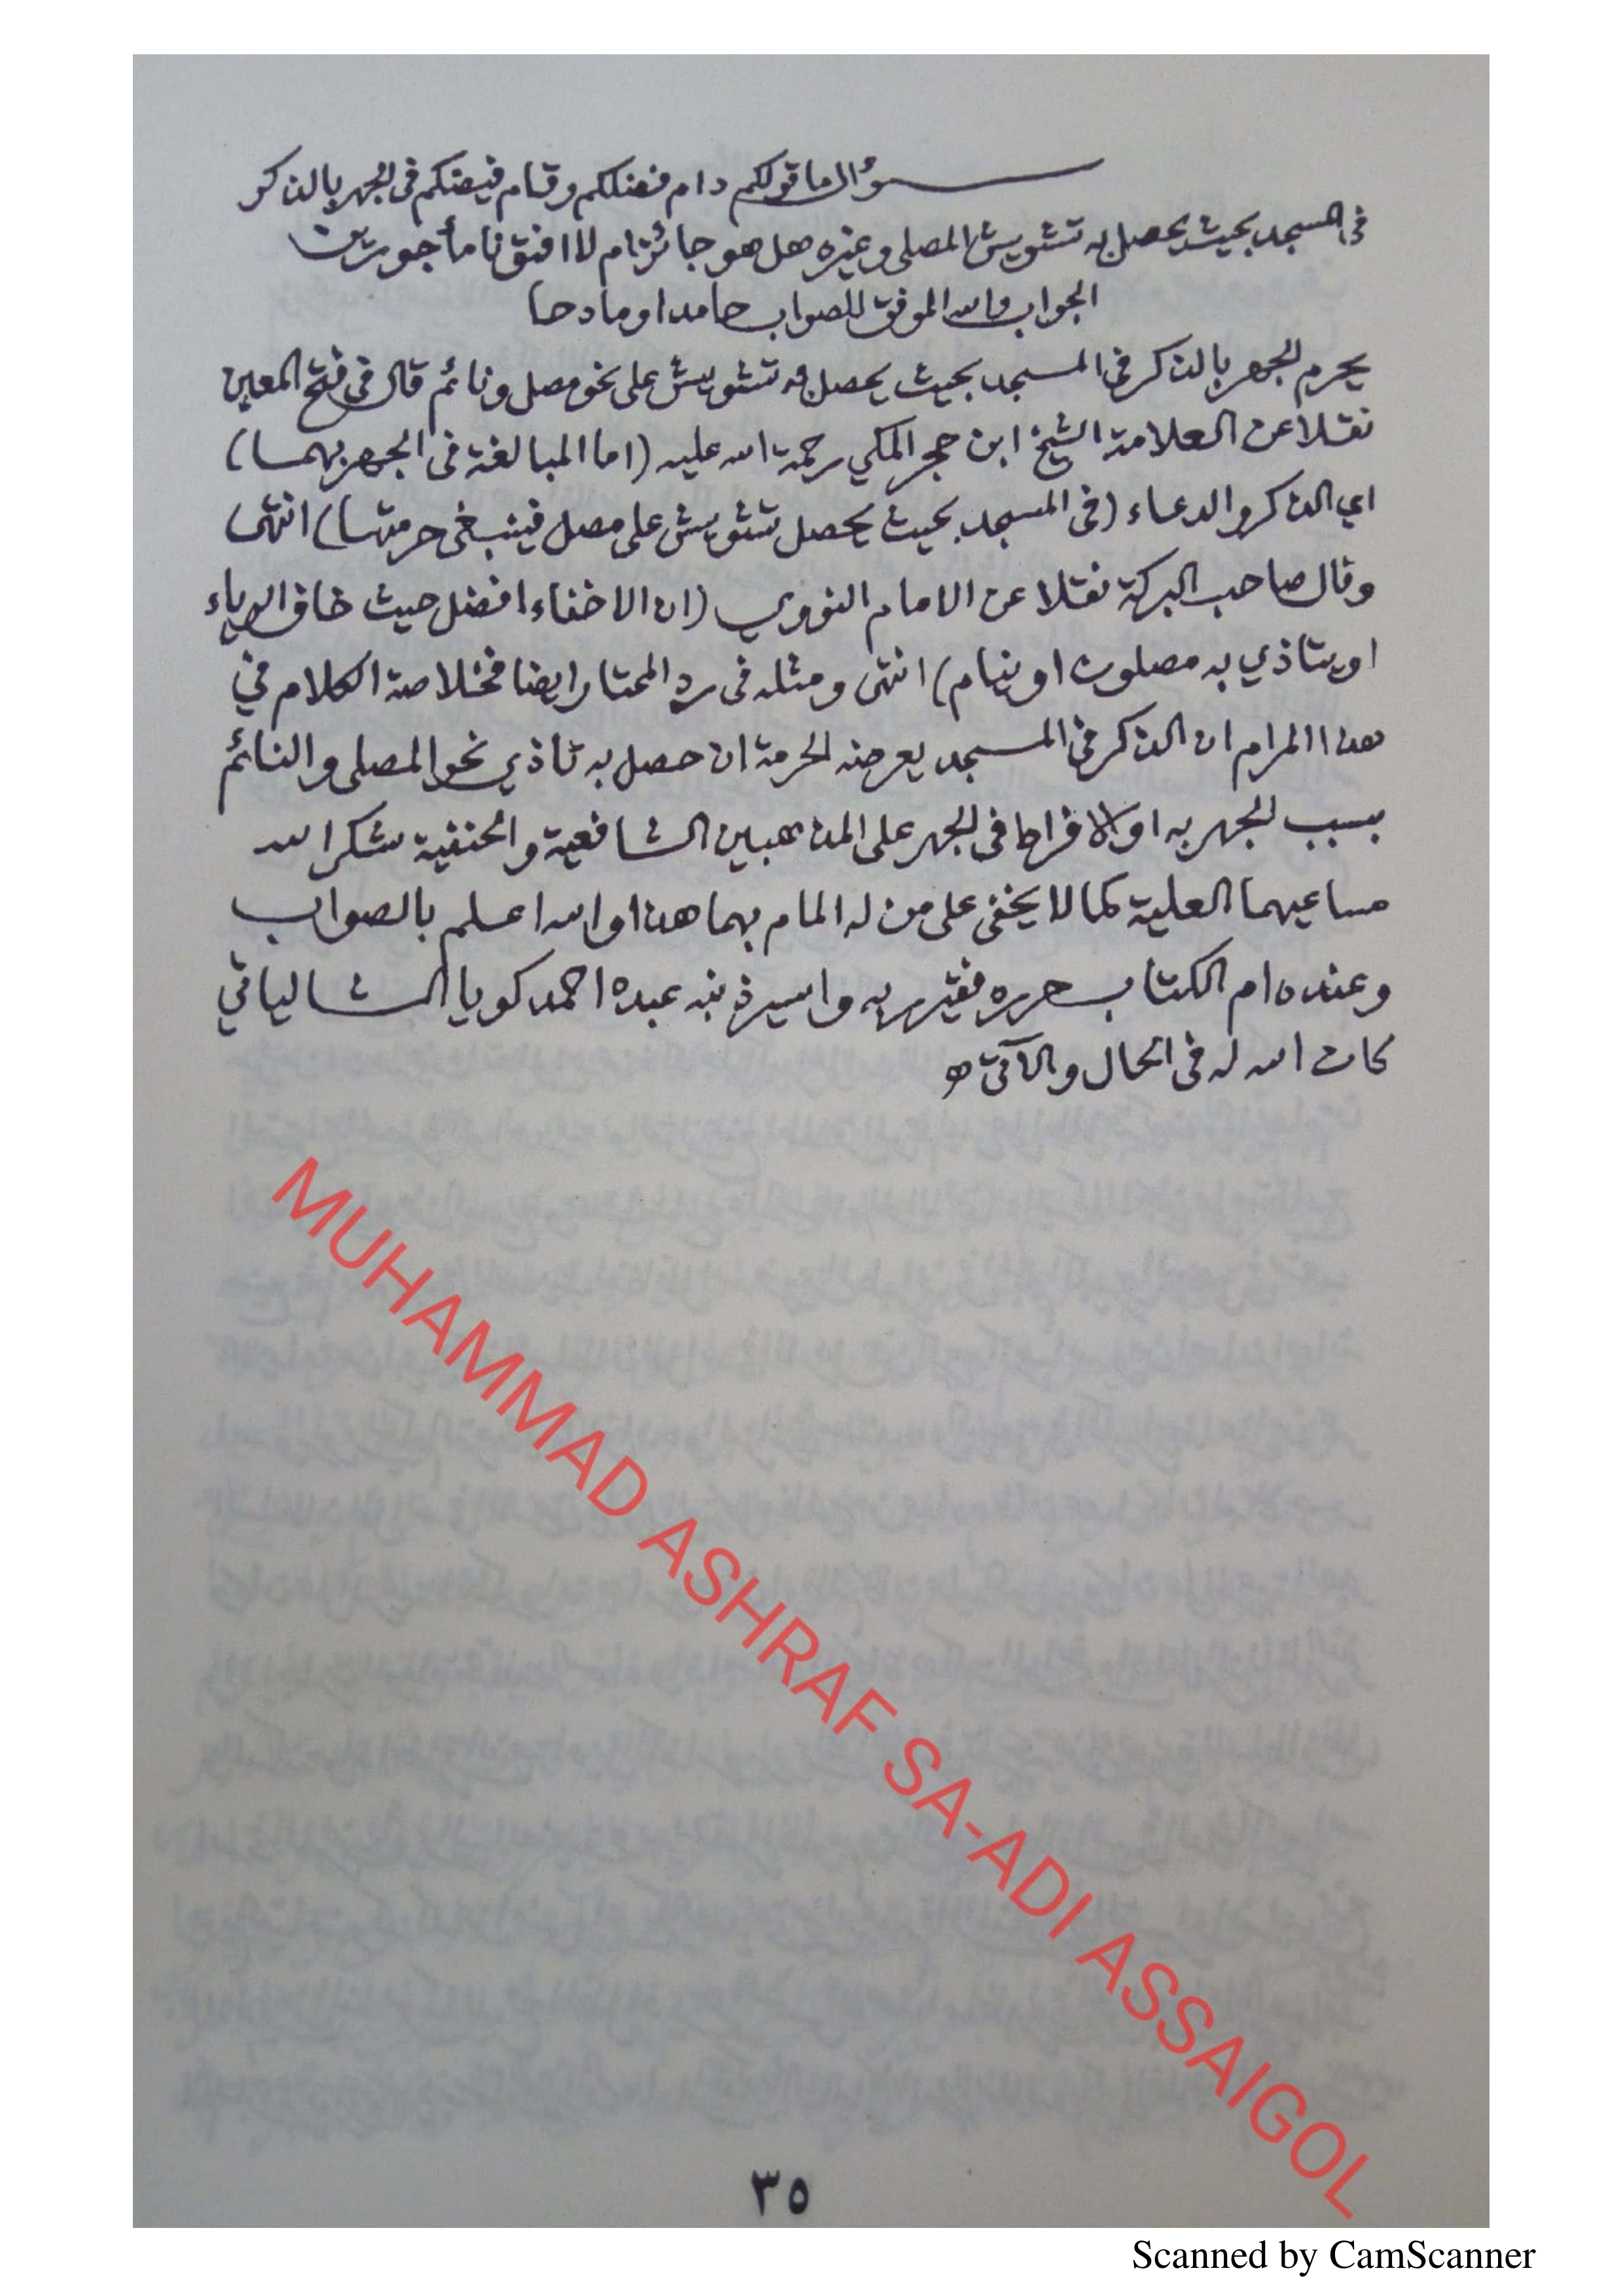 سؤال ما قولكم دام فضلكم وقام فيضكم فى الجهر بالذكر
فى المسجد بحيث يحصل به تشويش المصلى وغيره هل هو جائز ام لا افتونا مأجورين
الجواب والله الموفق للصواب حامدا ومادحا
يحرم الجهر بالذكر فى المسجد بحيث يحصل به تشويش على نحو مصل ونائم قال فى فتح المعين
نقلا عن العلامة الشيخ ابن حجر المكي رحمة الله عليه (اما المبالغة فى الجهر بهما)
اي الذكر والدعاء (فى المسجد بحيث يحصل تشويش على مصل فينبغى حرمتها) انتهى
وقال صاحب البركة نقلا عن الامام النووي (ان الاخفاء افضل حيث خاف الرياء
او يتاذي به مصلون او نيام) انتهى ومثله فى رد المحتار ايضا فخلاصة الكلام في
هذا المرام ان الذكر فى المسجد يعرضه الحرمة ان حصل به تاذي نحو المصلى والنائم
بسبب الجهر به او الافراط فى الجهر على المذهبين الشافعية والحنفية شكر الله
مساعيهما العلية كما لا يخفى على من له المام بهما هذا والله اعلم بالصواب
وعنده ام الكتاب حرره فقير ربه واسير ذنبه عبده احمد كويا الشالياتي
كان الله له فى الحال والآتى
MUHAMMAD ASHRAF SA-ADI ASSAIGOL
٣٥
Scanned by CamScanner